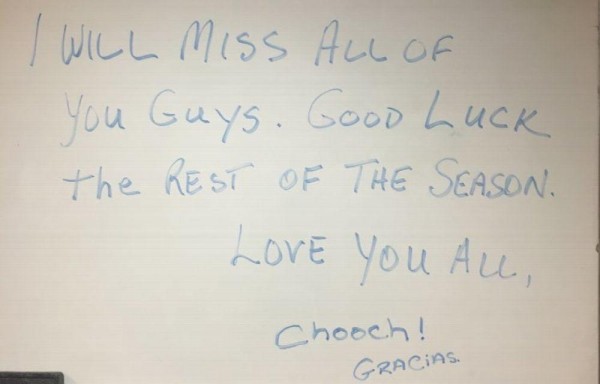 I WILL MISS ALL OF
You Guys. GOOD LUCK
the REST OF THE SEASON.
LOVE YOU ALL,
Chooch!
GRACIAS.